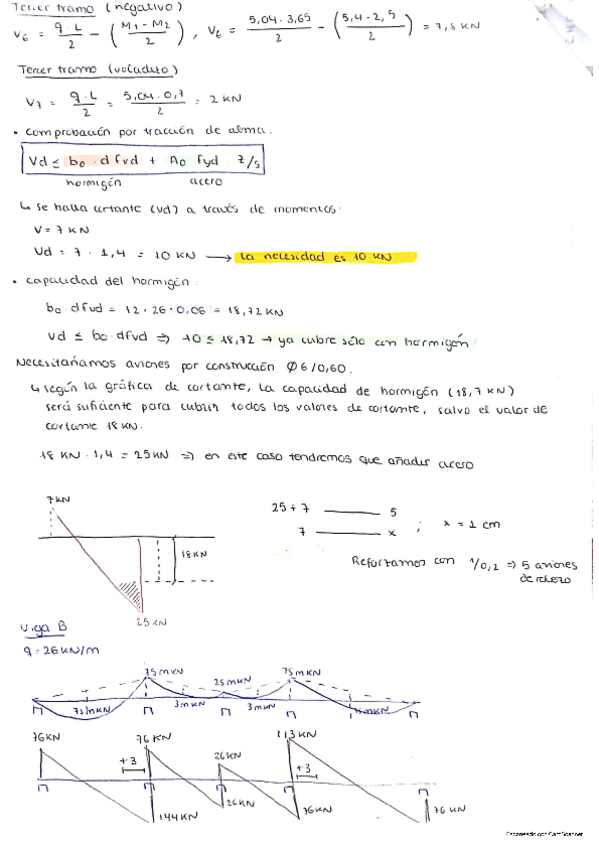 Tercer tramo (negativo)
V6 = q·L/2 - (M1-M2/2) , V6 = 5,04·3,65/2 - (5,4-2,5/2) = 7,8 KN
Tercer tramo (voladizo)
V7 = q·L/2 = 5,04·0,7/2 = 2 KN
• comprobación por tracción de alma.
Vd ≤ b0·d fvd + A0 fyd z/s
hormigón acero
↳ se halla cortante (vd) a través de momentos:
V = 7 KN
Vd = 7 · 1,4 = 10 KN → la necesidad es 10 KN
• capacidad del hormigón:
b0·d fvd = 12·26·0,06 = 18,72 KN
Vd ≤ b0·dfvd ⇒ 10 ≤ 18,72 → ya cubre sólo con hormigón
Necesitaríamos aviones por construcción Ø6/0,60.
↳ según la gráfica de cortante, la capacidad de hormigón (18,7 KN)
será suficiente para cubrir todos los valores de cortante, salvo el valor de
cortante 18 KN.
18 KN · 1,4 = 25 KN ⇒ en este caso tendremos que añadir acero
7KN
18KN
25 KN
25+7 — 5
7 — x ; x = 1 cm
Reforzamos con 1/0,2 ⇒ 5 aviones
Viga B
q = 26 KN/m
75mKN 25mKN 75mKN
3mKN 3mKN
76KN 76KN 26KN 113KN
+3 +3
144KN 26KN 76KN 76 KN
Escaneado con CamScanner